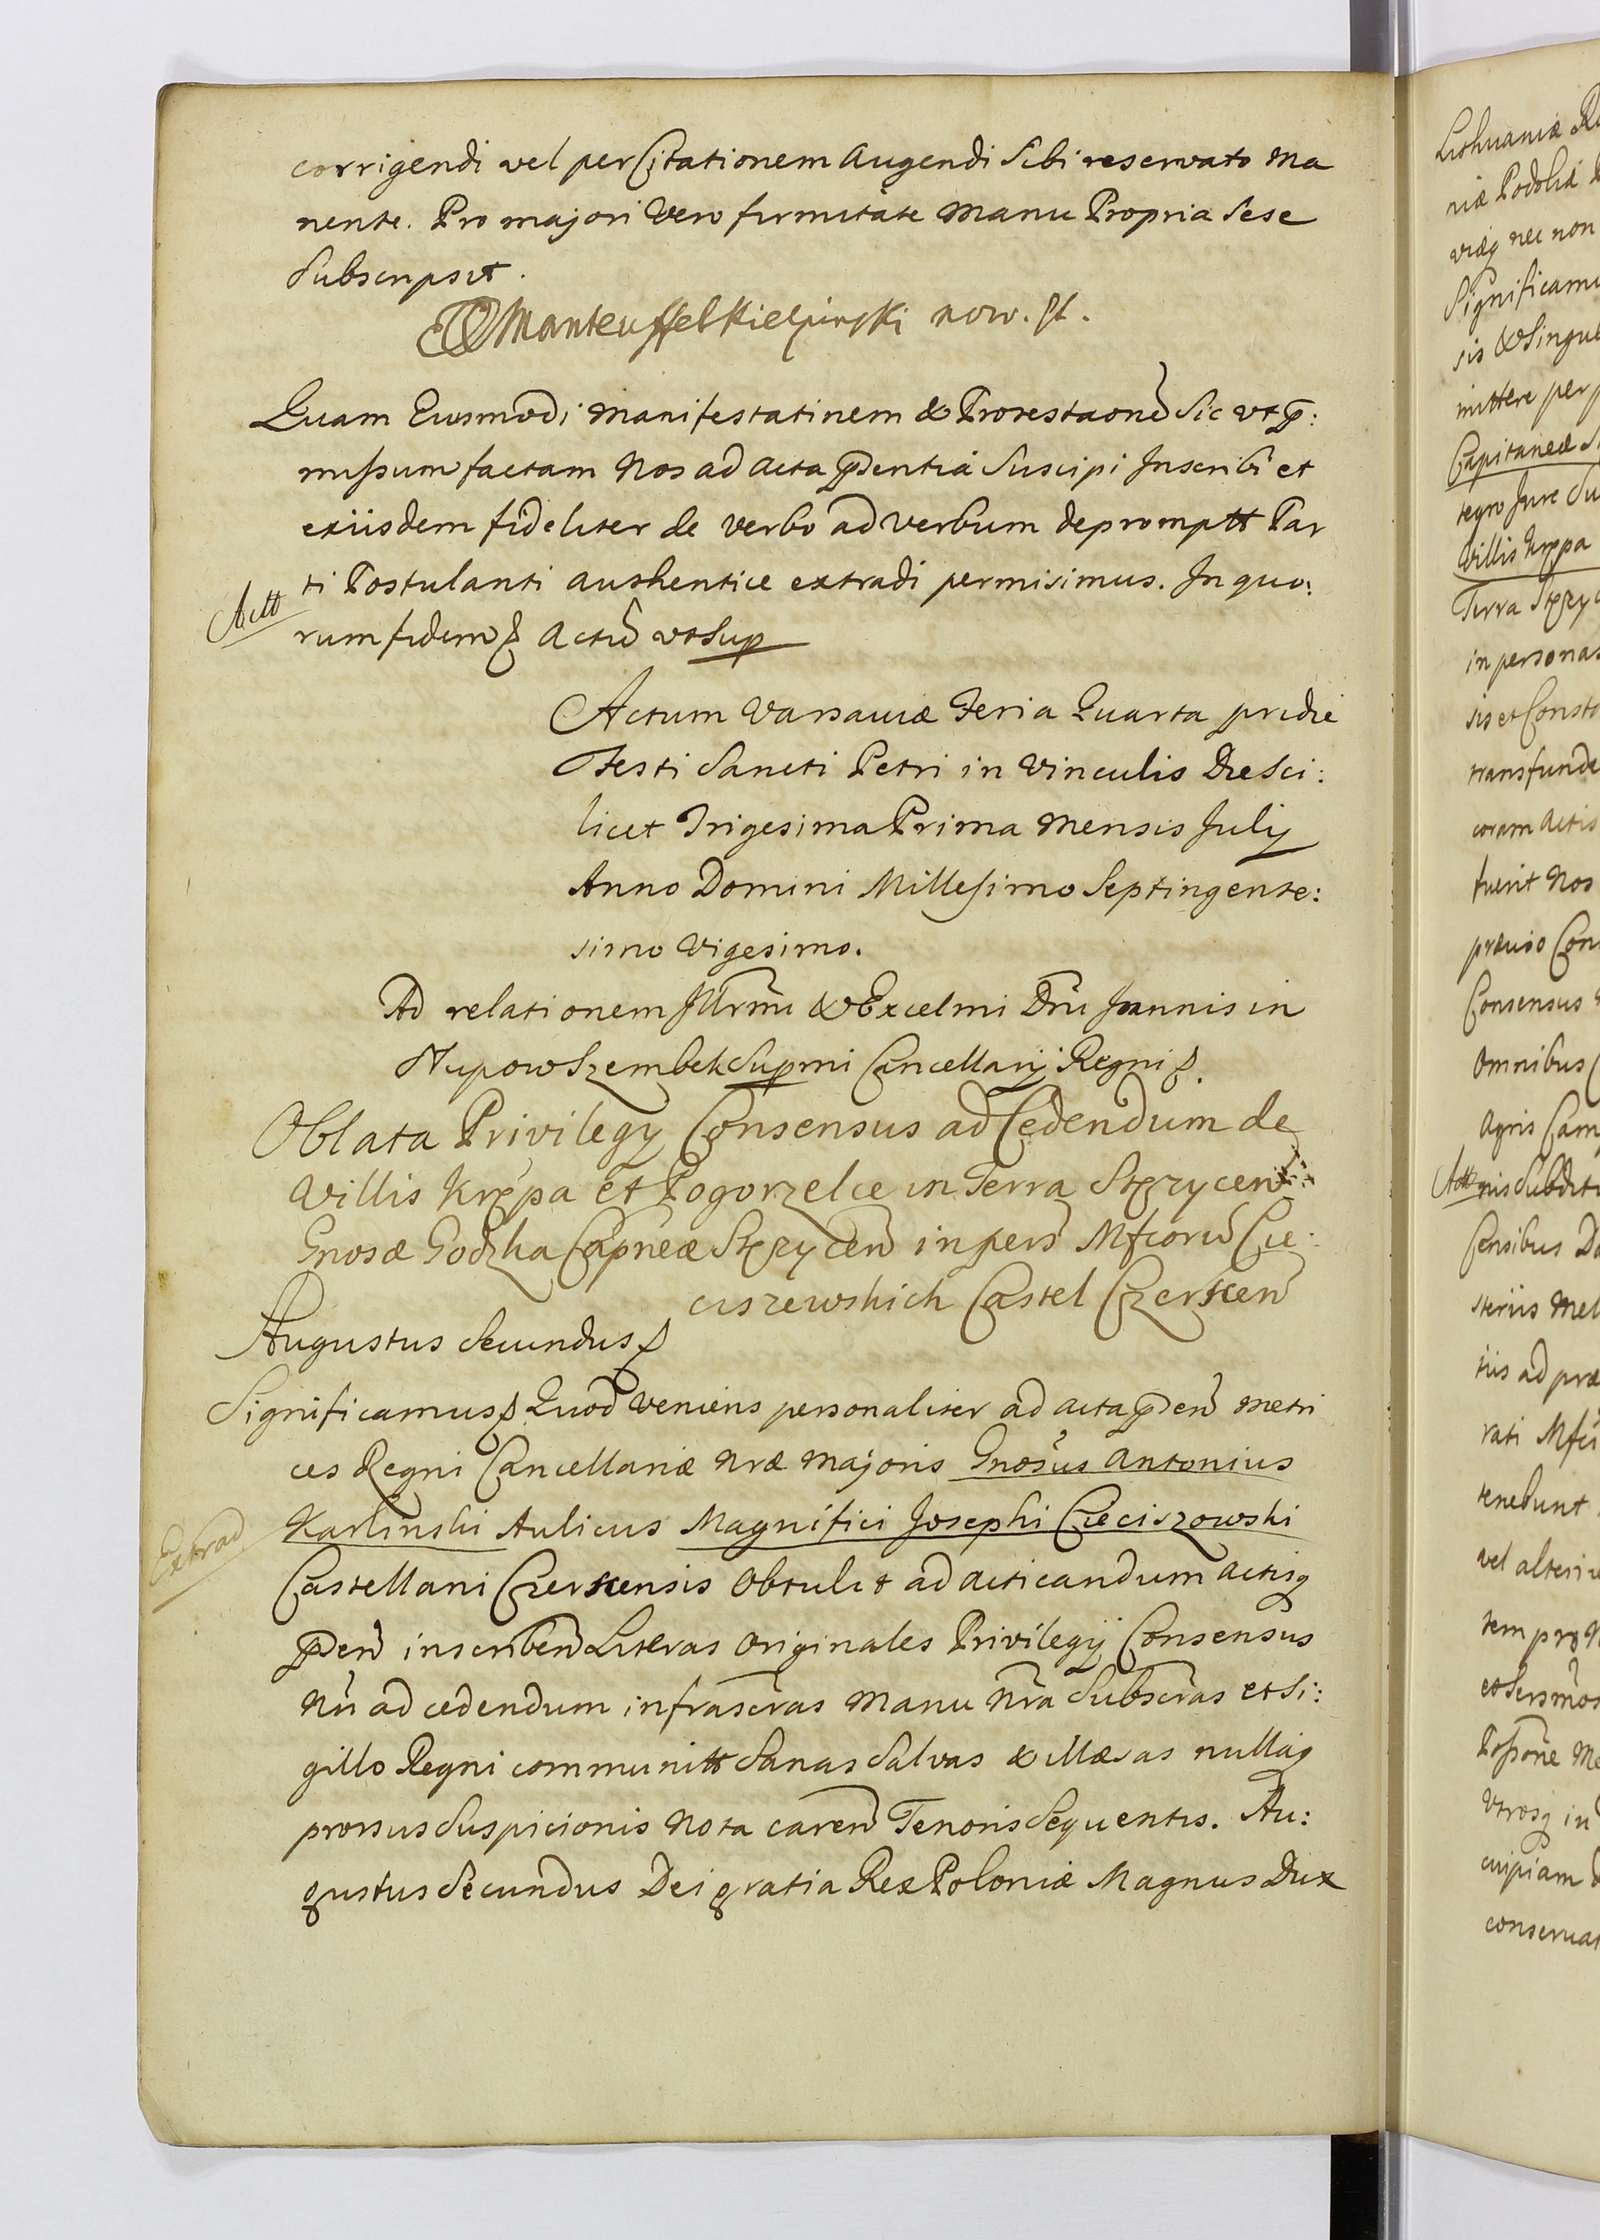 corrigendi vel per Citationem Augendi Sibi reservato ma
nente. Pro majori Vero firmitate manu Propria Sese
Subscripsit.
Manteuffel Kielpinski now. 
Quam Eiusmodi manifestatinem & Protestaonē Sic vt p̄:
missum factam Nos ad acta p̄dentia Suscipi Inscribi et
exiisdem fideliter de verbo ad verbum depromptt Par
ti Postulanti authentice extradi permisimus. In quo:
Actt
rum fidem & Actū vt Sup
Actum Varsaviæ Feria Quarta pridie
Festi Sancti Petri in Vinculis Die Sci:
licet Trigesima Prima Mensis July
Anno Domini Millesimo Septingente:
simo Vigesimo.
Ad relationem Illrmi & Excelmi Dni Joannis in
Słupow Szembek Supmi Cancellarij Regni &.
Oblata Privilegy Consensus ad Cedendum de
Villis Krępa et Pogorzelce in Terra Stęzycen
Gnosæ Godzka Capneæ Stęzycen in pers Mfcorū Cie:
ciszewskich Castel Czerscen
Augustus Secundus &
Significamus & Quod Veniens personaliter ad acta p̄den metri
ces Regni Cancellariæ nræ majoris Gnosus Antonius
Karlinski Aulicus Magnifici Josephi Cieciszowski
Extrad
Castellani Czerscensis obtulit ad acticandum actisq
p̄den inscriben Literas originales Privilegij Consensus
Nri ad cedendum infrascras manu nra Subscras et Si:
gillo Regni communitt Sanas Salvas & illæsas nullaq
prorsus Suspicionis nota caren Tenoris Sequentis. Au:
gustus Secundus Dei gratia Rex Poloniæ Magnus Dux
Lithuaniæ
niæ Podoliæ
viæq nec non
Significamus
sis & Singul
mittere per
Capitaneæ
tegro Jure Su
Villis Krępa
Terra Stęzyc
in personas
sis et Consto
transfunde
coram actis
fuerit Nos
præuio Con
Consensus
omnibus
Agris Cam
Actt nis Subditi
Censibus
steriis Mel
tiis ad præ
rati Mfci
tenebunt
vel alteri
tem pro
et Sersmos
Possone Me
Vtrosq in
cuipiam
conservat